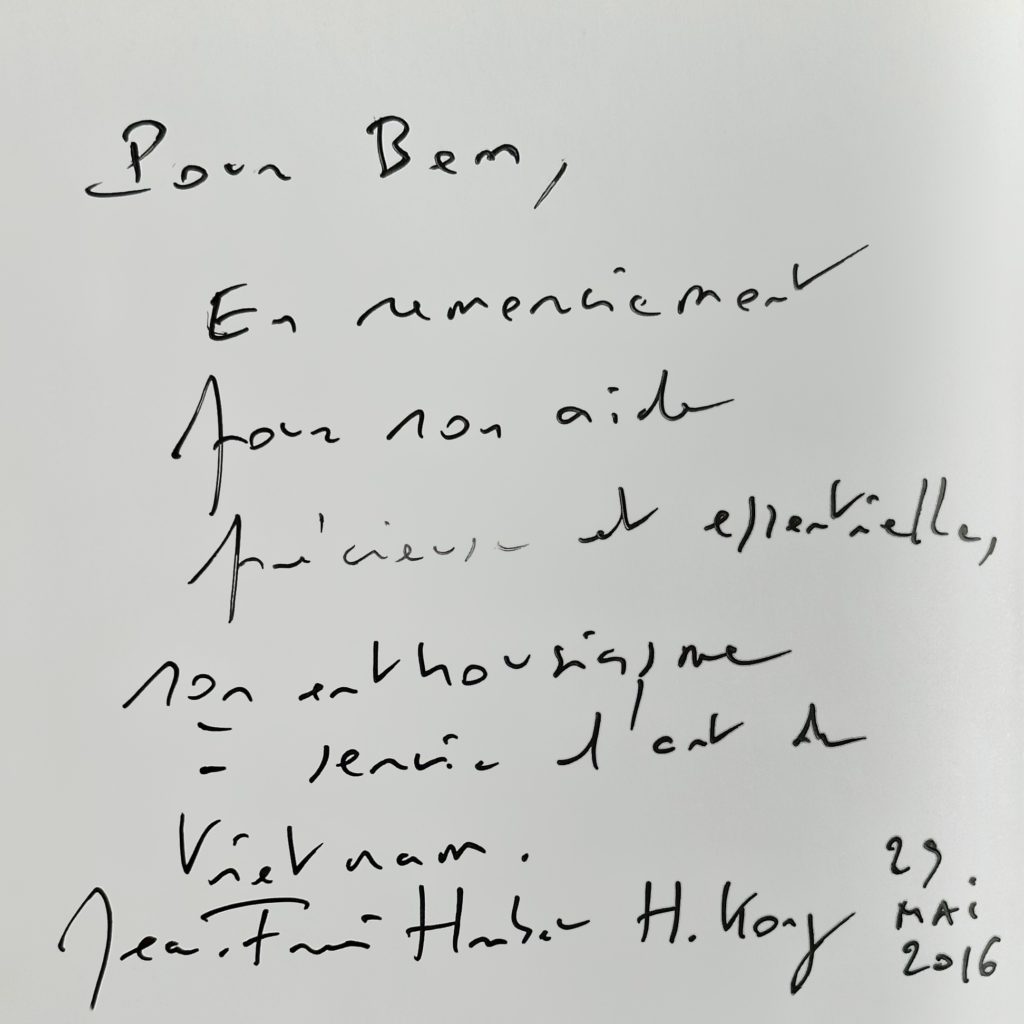 Pour Ben,
En remerciement
pour son aide
précieuse et essentielle,
son enthousiasme
à servir l'art du
Vietnam.
Jean-François Hubert H. Kong
29
MAi
2016